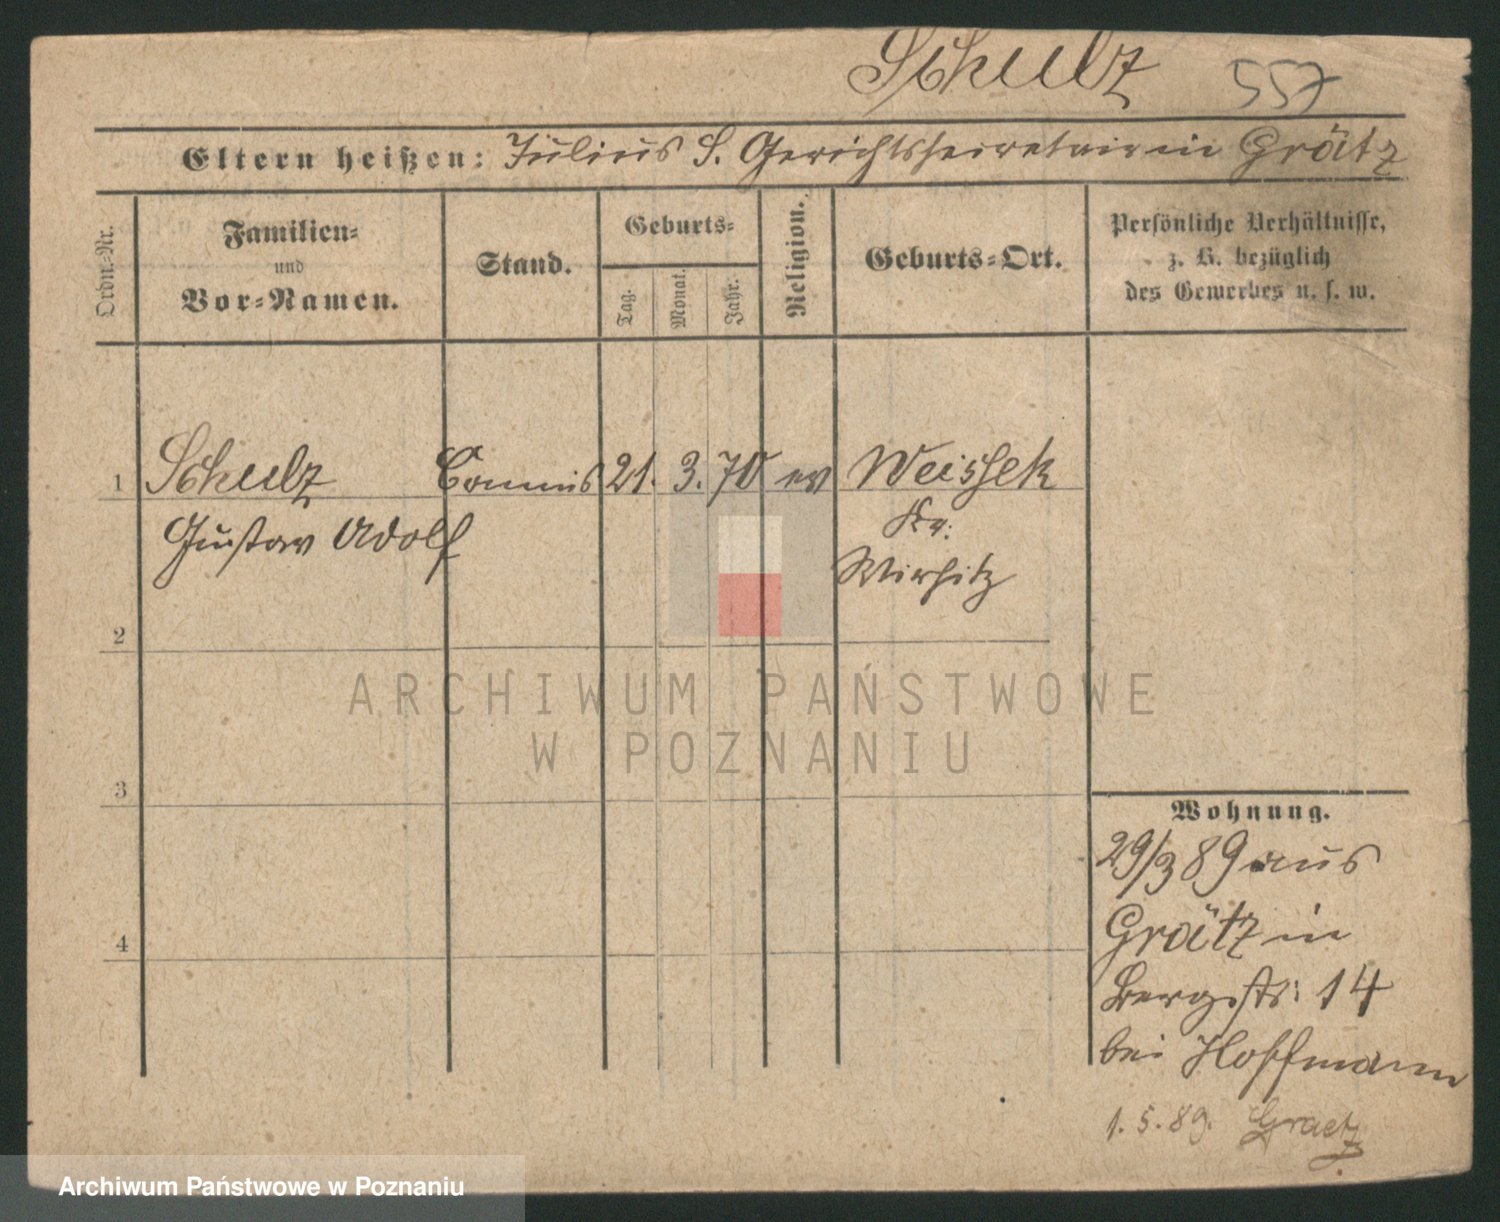 Schulz 557
Eltern heißen: Julius S. Gerichtssecretair in Grätz
Ordn.-Nr.
Familien-
und
Vor-Namen.
Stand.
Geburts-
Tag.
Monat.
Jahr.
Religion.
Geburts-Ort.
Persönliche Verhältnisse,
z. B. bezüglich
des Gewerbes u. s. w.
1 Schulz Commis 21. 3. 70 ev Weissek
Gustav Adolf
Kr.
Wirsitz
2
3
4
Wohnung.
29/3 89 aus
Grätz in
Bergstr: 14
bei Hoffmann
1. 5. 89. Graetz
ARCHIWUM PAŃSTWOWE
W POZNANIU
Archiwum Państwowe w Poznaniu